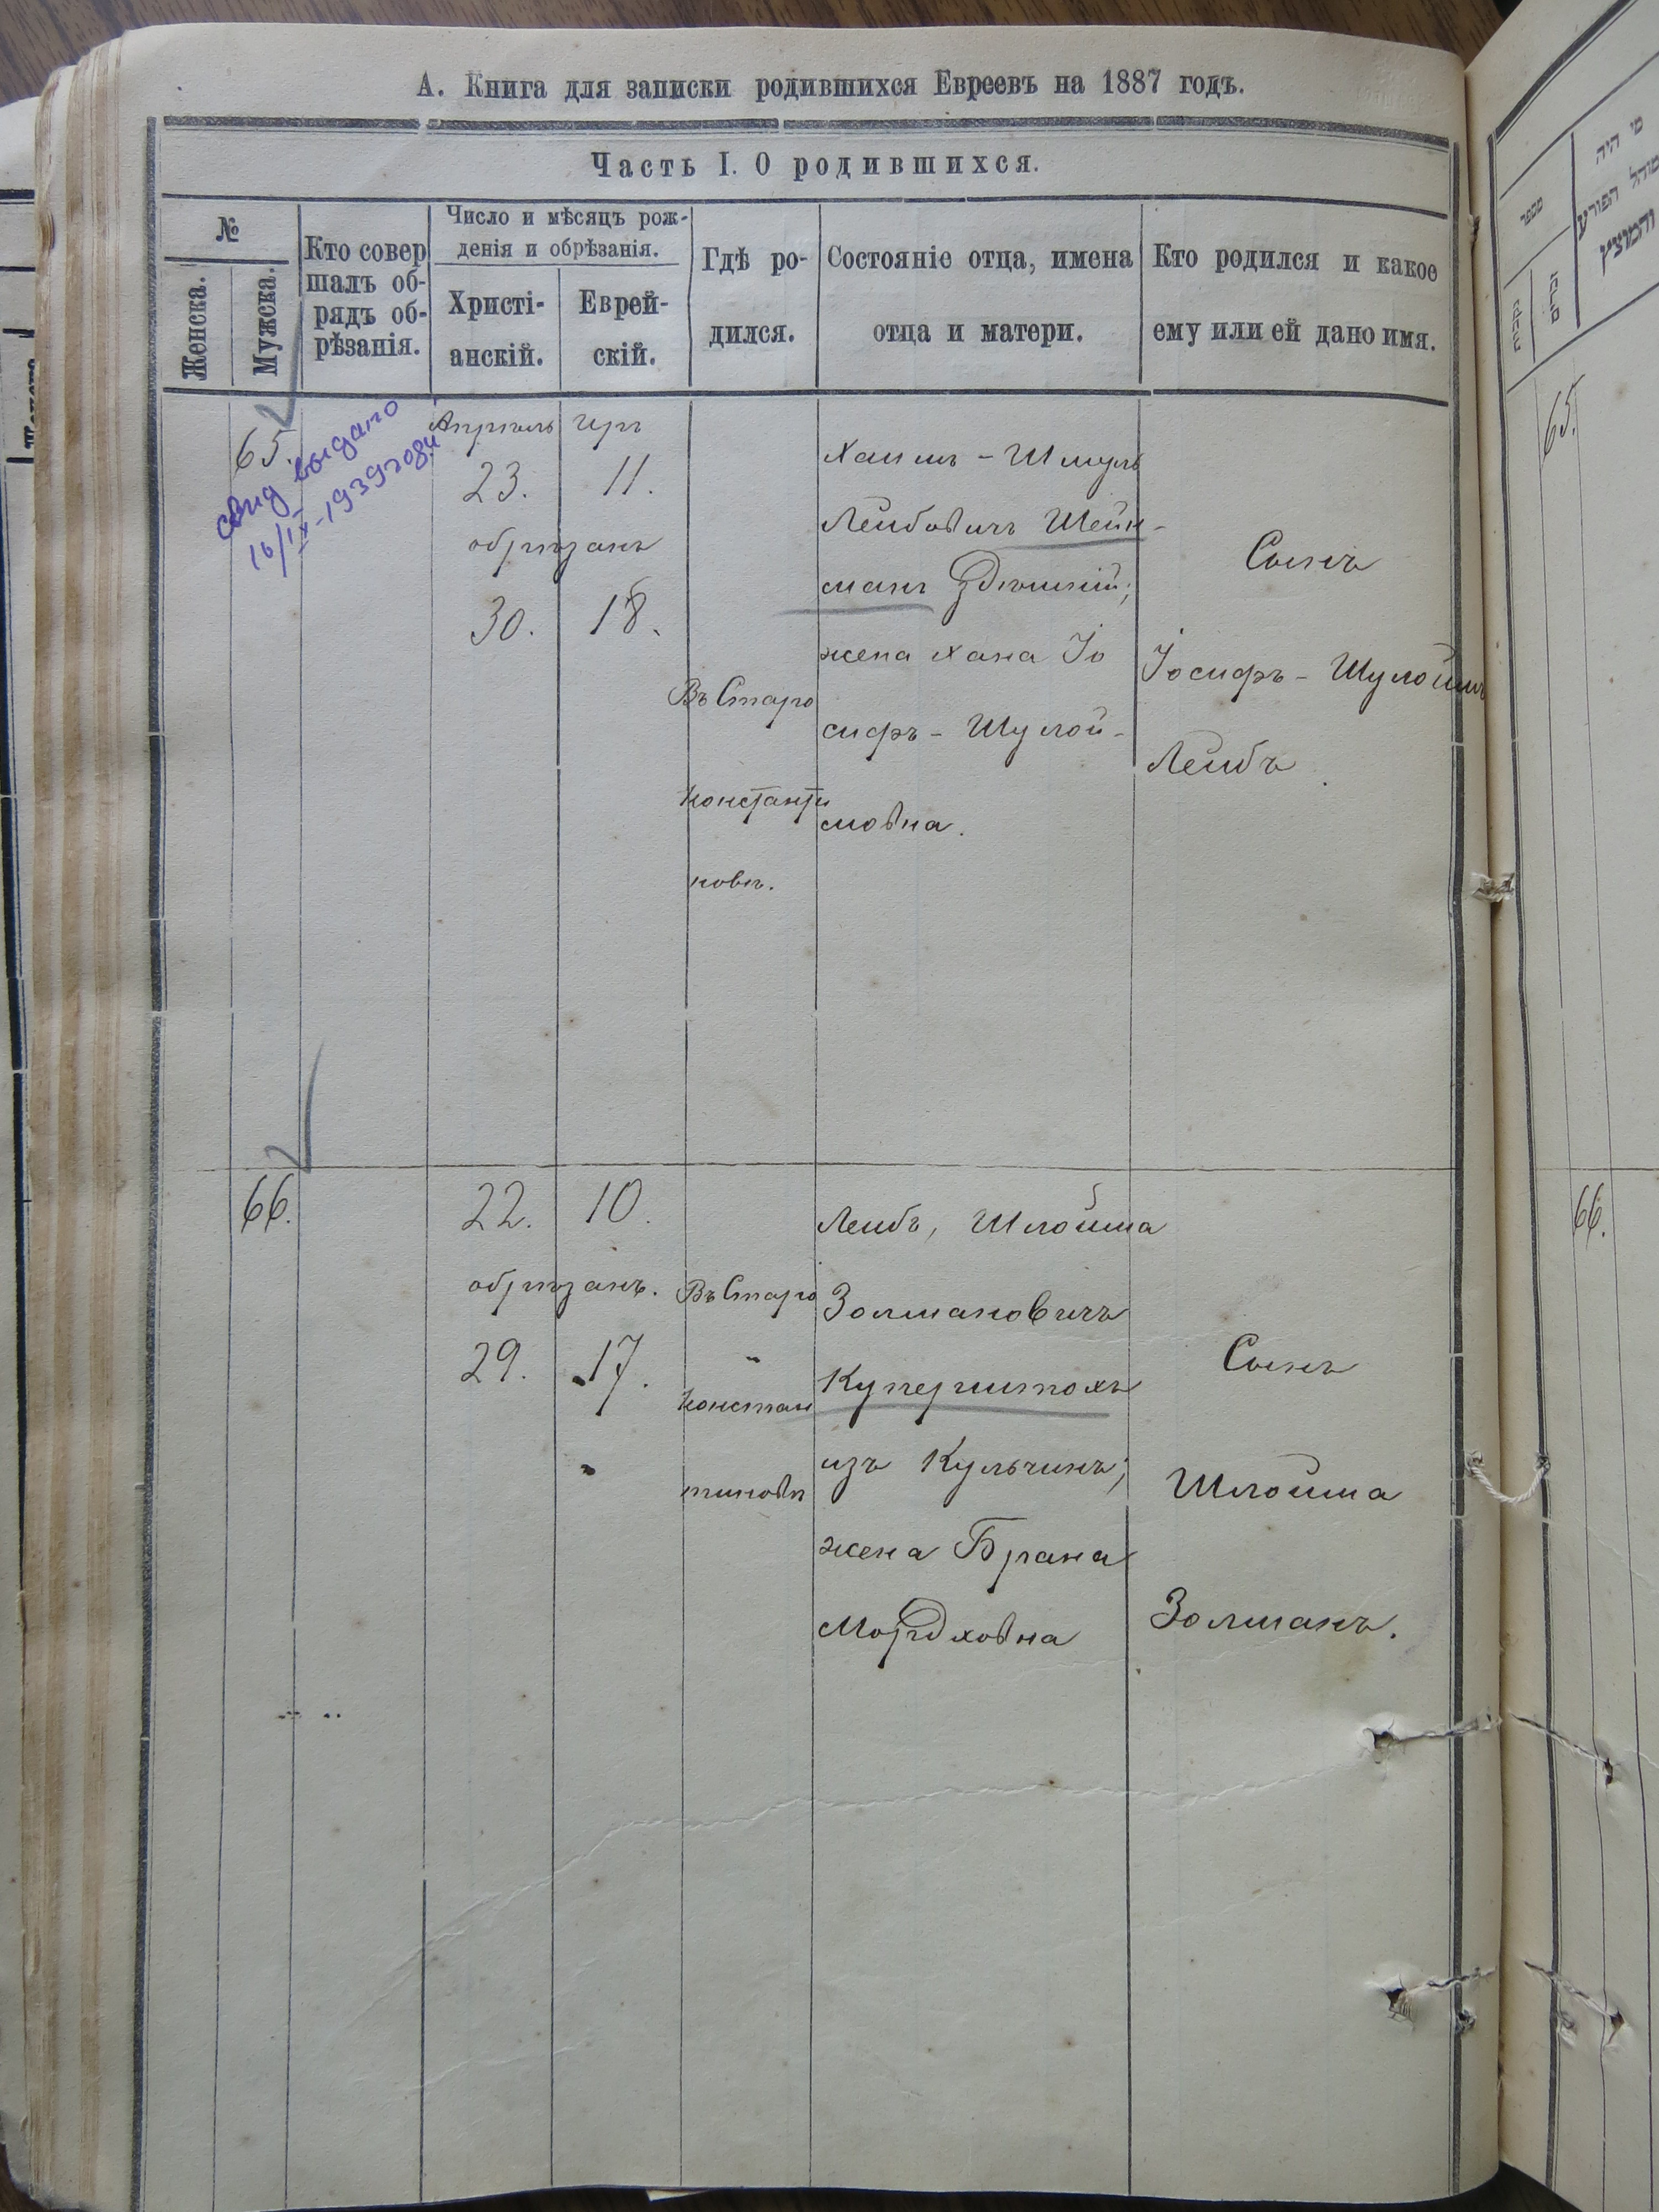 А. Книга для записки родившихся Евреевъ на 1887 годъ.
Часть I. О родившихся.
№
Женска.
Мужска.
Кто совер
шалъ об-
рядъ об-
рѣзанія.
Число и мѣсяцъ рож-
денія и обрѣзанія.
Христі-
анскій.
Еврей-
скій.
Гдѣ ро-
дился.
Состояніе отца, имена
отца и матери.
Кто родился и какое
ему или ей дано имя.
65.
свид выдано
16/IX-1939 года
Апрѣль
23.
обрѣзанъ
30.
Ияръ
11.
18.
Въ Старо
константи
новѣ.
Хаимъ-Шмуль
Лейбовичъ Шейн-
манъ Здѣшній;
жена Хана Іо
сифъ-Шулой-
мовна.
Сынъ
Іосифъ-Шулоимъ
Лейбъ
66.
22.
обрѣзанъ.
29.
10.
17.
Въ Старо
констан
тиновѣ
Лейбъ, Шлойма
Золмановичъ
Куперштохъ
изъ Кульчинъ;
жена Брана
Мордховна
Сынъ
Шлойма
Золманъ.
מי היה
מוהל הפורע
והמוצץ
מספר
נקבות
זכרים
65.
66.